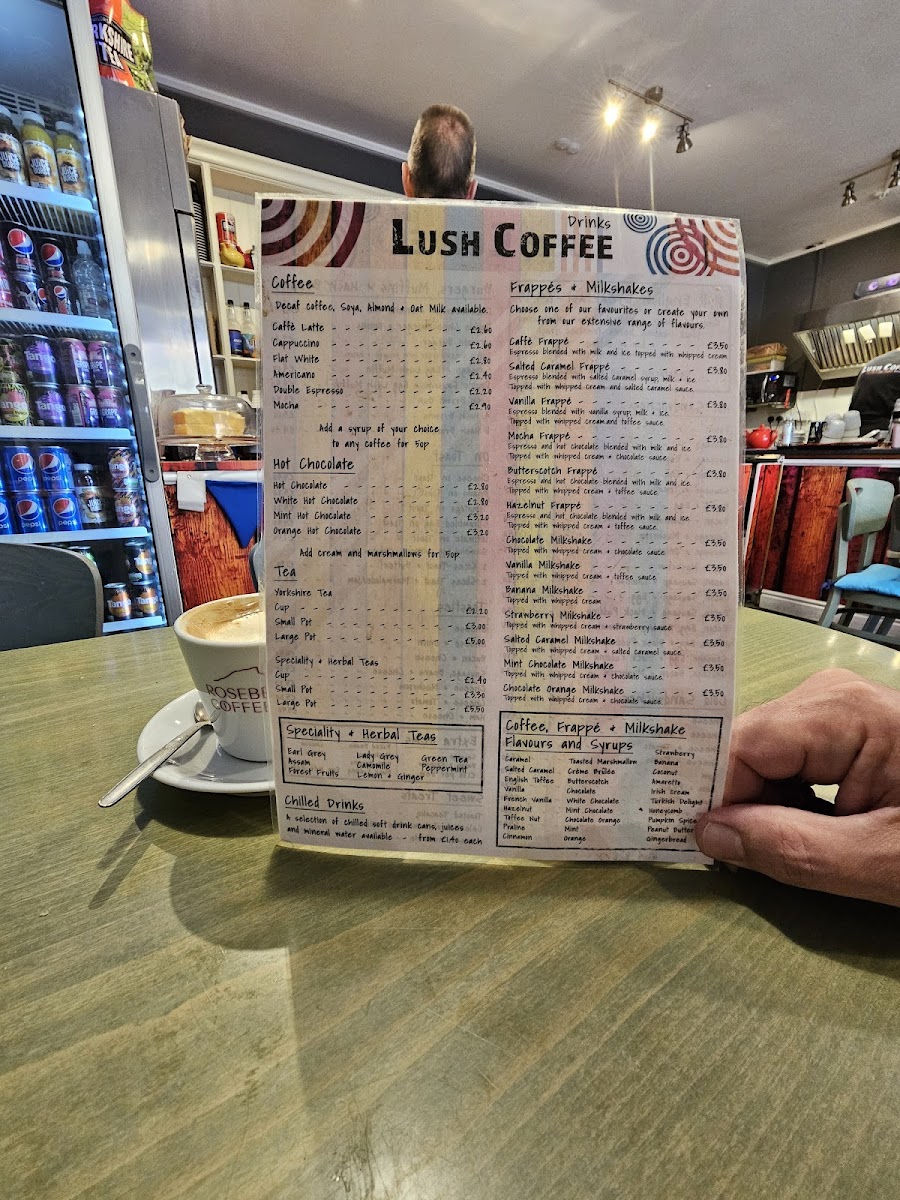 RKSHIRE
TEA
Drinks
LUSH COFFEE
Coffee
Decaf coffee, Soya, Almond + Oat Milk available.
Caffè Latte - £2.60
Cappuccino - £2.60
Flat White - £2.80
Americano - £2.40
Double Espresso - £2.20
Mocha - £2.90
Add a syrup of your choice
to any coffee for 50p
Hot Chocolate
Hot Chocolate - £2.80
White Hot Chocolate - £2.80
Mint Hot Chocolate - £3.20
Orange Hot Chocolate - £3.20
Add cream and marshmallows for 50p
Tea
Yorkshire Tea
Cup - £2.20
Small Pot - £3.00
Large Pot - £5.00
Speciality + Herbal Teas
Cup - £2.40
Small Pot - £3.30
Large Pot - £5.50
Speciality + Herbal Teas
Earl Grey Lady Grey Green Tea
Assam Camomile Peppermint
Forest Fruits Lemon + Ginger
Chilled Drinks
A selection of chilled soft drink cans, juices
and mineral water available - from £1.40 each
Frappés + Milkshakes
Choose one of our favourites or create your own
from our extensive range of flavours.
Caffè Frappé - £3.50
Espresso blended with milk and ice topped with whipped cream
Salted Caramel Frappé - £3.80
Espresso blended with salted caramel syrup, milk + ice
Topped with whipped cream and salted caramel sauce.
Vanilla Frappé - £3.80
Espresso blended with vanilla syrup, milk + ice.
Topped with whipped cream and toffee sauce.
Mocha Frappé - £3.80
Espresso and hot chocolate blended with milk and ice.
Topped with whipped cream + chocolate sauce.
Butterscotch Frappé - £3.80
Espresso and hot chocolate blended with milk and ice.
Topped with whipped cream + toffee sauce.
Hazelnut Frappé - £3.80
Espresso and hot chocolate blended with milk and ice.
Topped with whipped cream + toffee sauce.
Chocolate Milkshake - £3.50
Topped with whipped cream + chocolate sauce.
Vanilla Milkshake - £3.50
Topped with whipped cream + toffee sauce.
Banana Milkshake - £3.50
Topped with whipped cream
Strawberry Milkshake - £3.50
Topped with whipped cream + strawberry sauce.
Salted Caramel Milkshake - £3.50
Topped with whipped cream + salted caramel sauce.
Mint Chocolate Milkshake - £3.50
Topped with whipped cream + chocolate sauce.
Chocolate Orange Milkshake - £3.50
Topped with whipped cream + chocolate sauce.
Coffee, Frappé + Milkshake
Flavours and Syrups
Caramel Toasted Marshmallow Strawberry
Salted Caramel Crème Brûlée Banana
English Toffee Butterscotch Coconut
Vanilla Chocolate Amaretto
French Vanilla White Chocolate Irish Cream
Hazelnut Mint Chocolate Turkish Delight
Toffee Nut Chocolate Orange Honeycomb
Praline Mint Pumpkin Spice
Cinnamon Orange Peanut Butter
Gingerbread
ROSEBE
COFFEE
pepsi
pepsi
pepsi
Tango
Tango
Lush Co